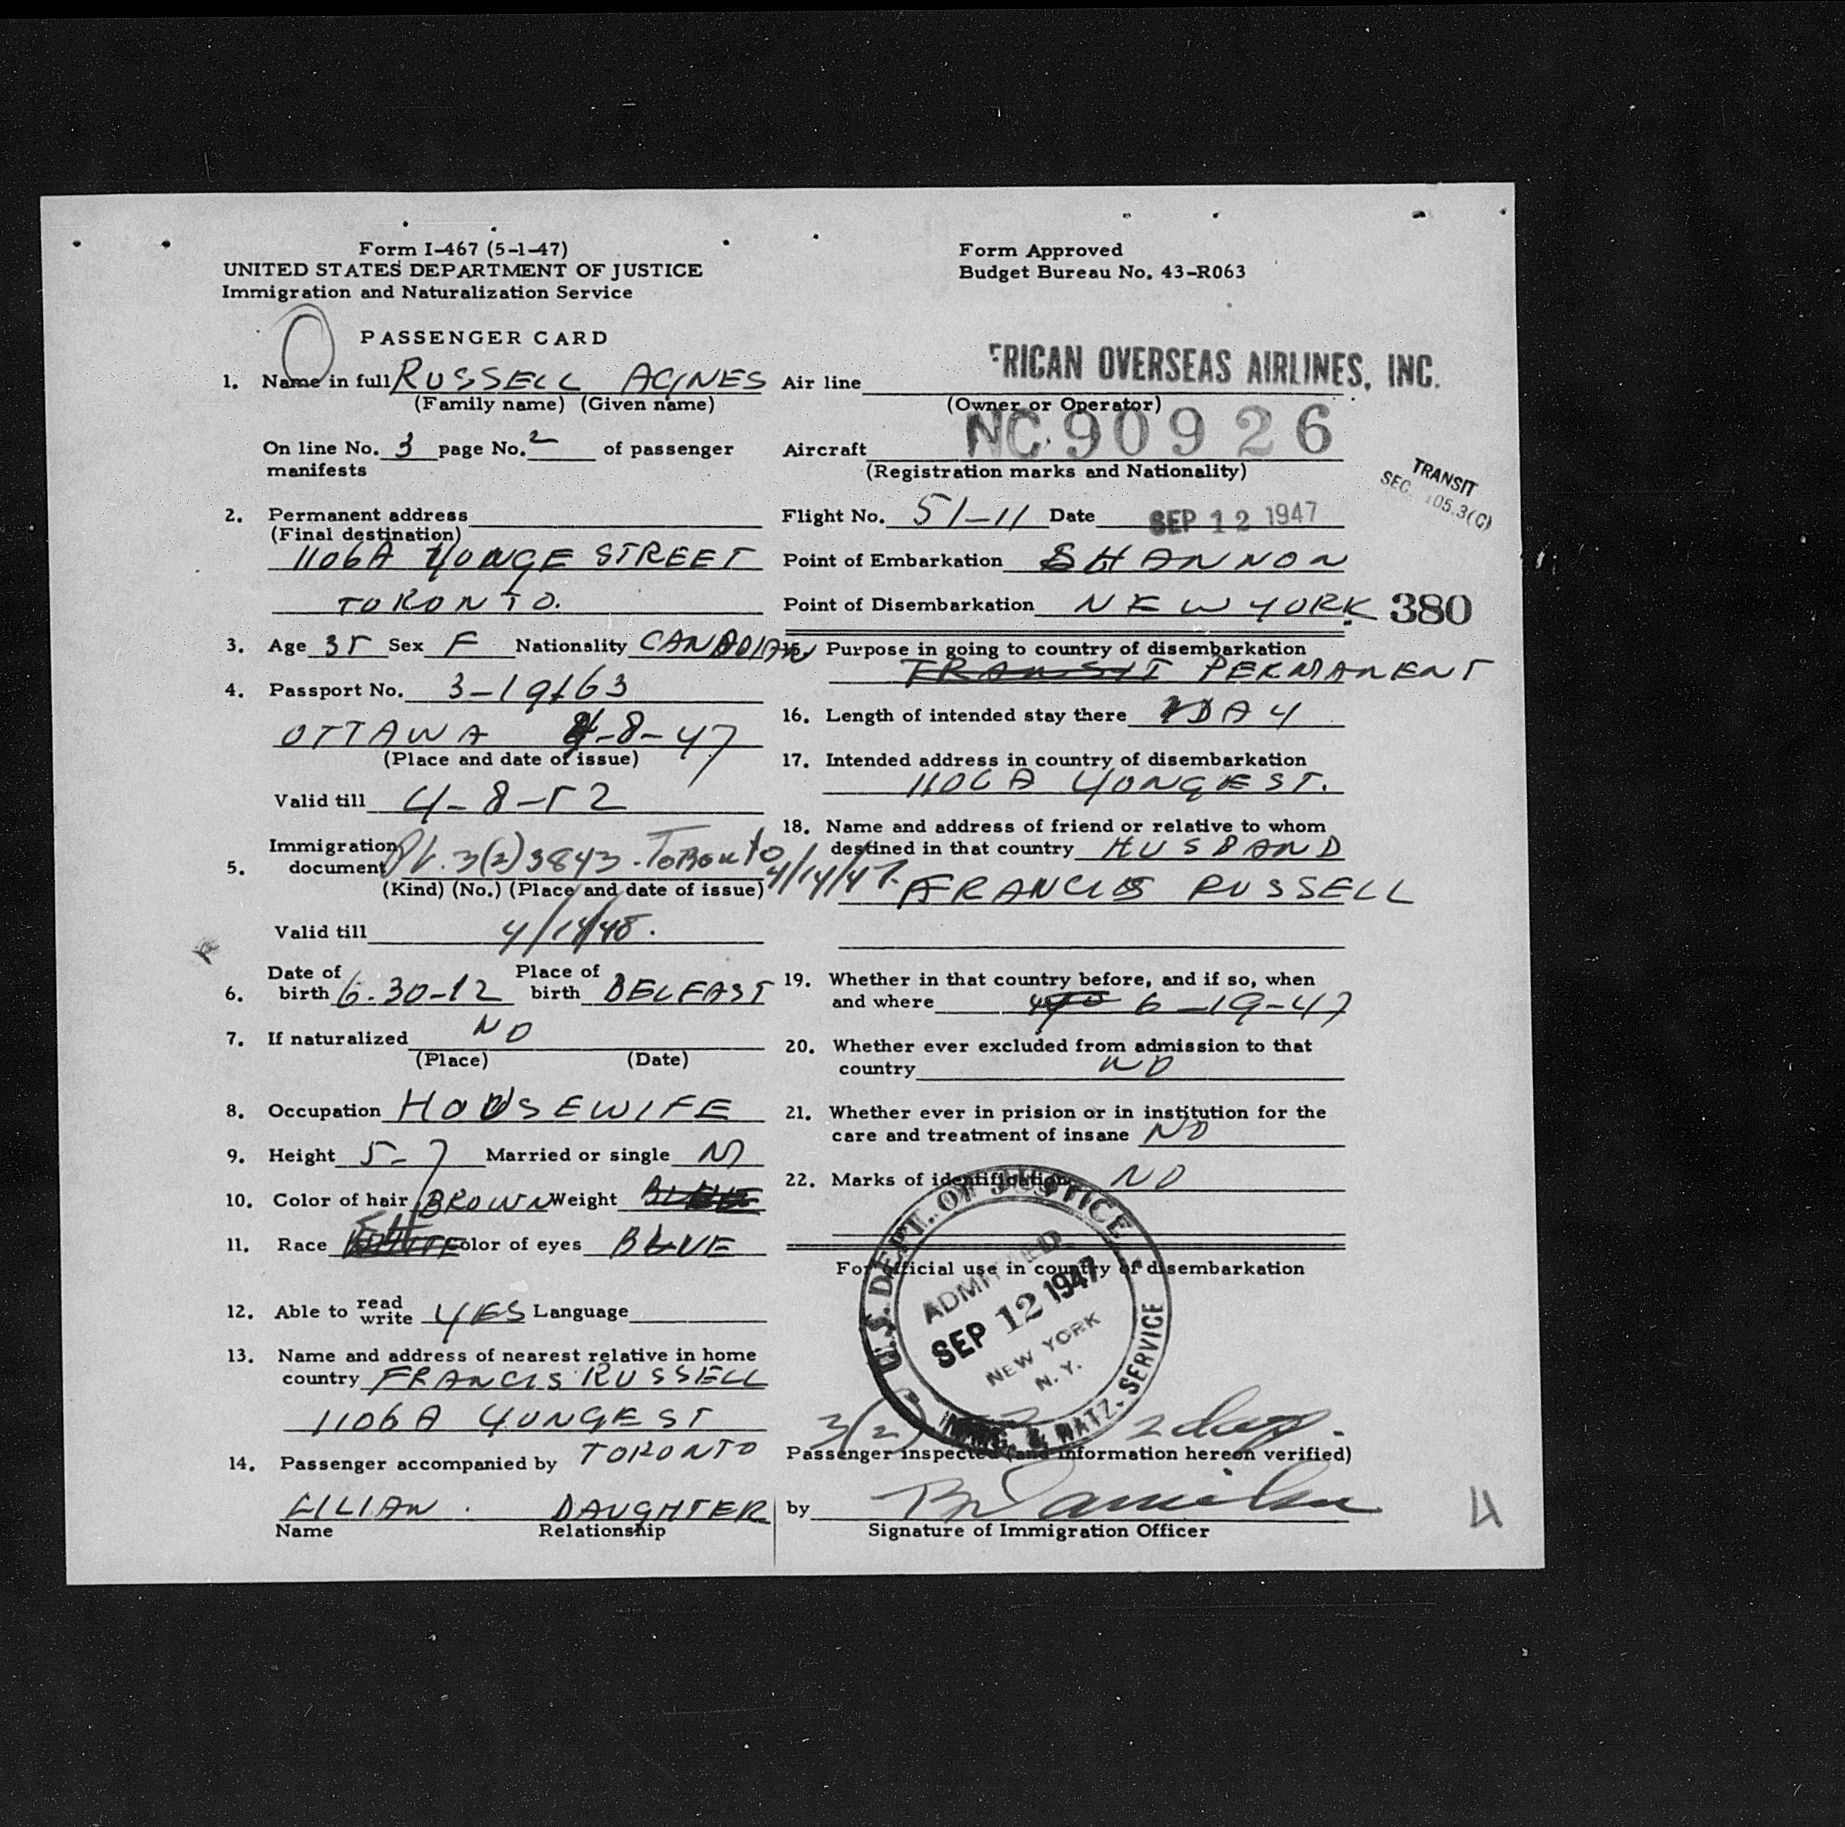 Form I-467 (5-1-47)
UNITED STATES DEPARTMENT OF JUSTICE
Immigration and Naturalization Service
PASSENGER CARD
1. Name in full RUSSELL AGNES
(Family name) (Given name)
On line No. 3 page No. 2 of passenger
manifests
2. Permanent address
(Final destination)
1106A YONGE STREET
TORONTO.
3. Age 35 Sex F Nationality CANADIAN
4. Passport No. 3-19163
OTTAWA 4-8-47
(Place and date of issue)
Valid till 4-8-52
5. Immigration
document 3(2) 3843 - Toronto 4/14/47.
(Kind) (No.) (Place and date of issue)
Valid till 4/14/48.
6. Date of
birth 6.30-12 Place of
birth BELFAST
7. If naturalized NO
(Place) (Date)
8. Occupation HOUSEWIFE
9. Height 5-7 Married or single M
10. Color of hair BROWN Weight
11. Race Color of eyes BLUE
12. Able to read
write YES Language
13. Name and address of nearest relative in home
country FRANCIS RUSSELL
1106A YONGE ST
TORONTO
14. Passenger accompanied by
LILIAN. DAUGHTER
Name Relationship
Form Approved
Budget Bureau No. 43-R063
Air line ERICAN OVERSEAS AIRLINES, INC.
(Owner or Operator)
Aircraft NC 90926
(Registration marks and Nationality)
TRANSIT
SEC. 105.3(C)
Flight No. 51-11 Date SEP 12 1947
Point of Embarkation SHANNON
Point of Disembarkation NEW YORK 380
15. Purpose in going to country of disembarkation
TRANSIT PERMANENT
16. Length of intended stay there 1 DAY
17. Intended address in country of disembarkation
1106A YONGE ST.
18. Name and address of friend or relative to whom
destined in that country HUSBAND
FRANCIS RUSSELL
19. Whether in that country before, and if so, when
and where 6-19-47
20. Whether ever excluded from admission to that
country NO
21. Whether ever in prision or in institution for the
care and treatment of insane NO
22. Marks of identification NO
For official use in country of disembarkation
U.S. DEPT. OF JUSTICE
ADMITTED
SEP 12 1947
NEW YORK
N. Y.
IMMIG. & NATZ. SERVICE
3(2) 2 days.
Passenger inspected (and information hereon verified)
by
Signature of Immigration Officer